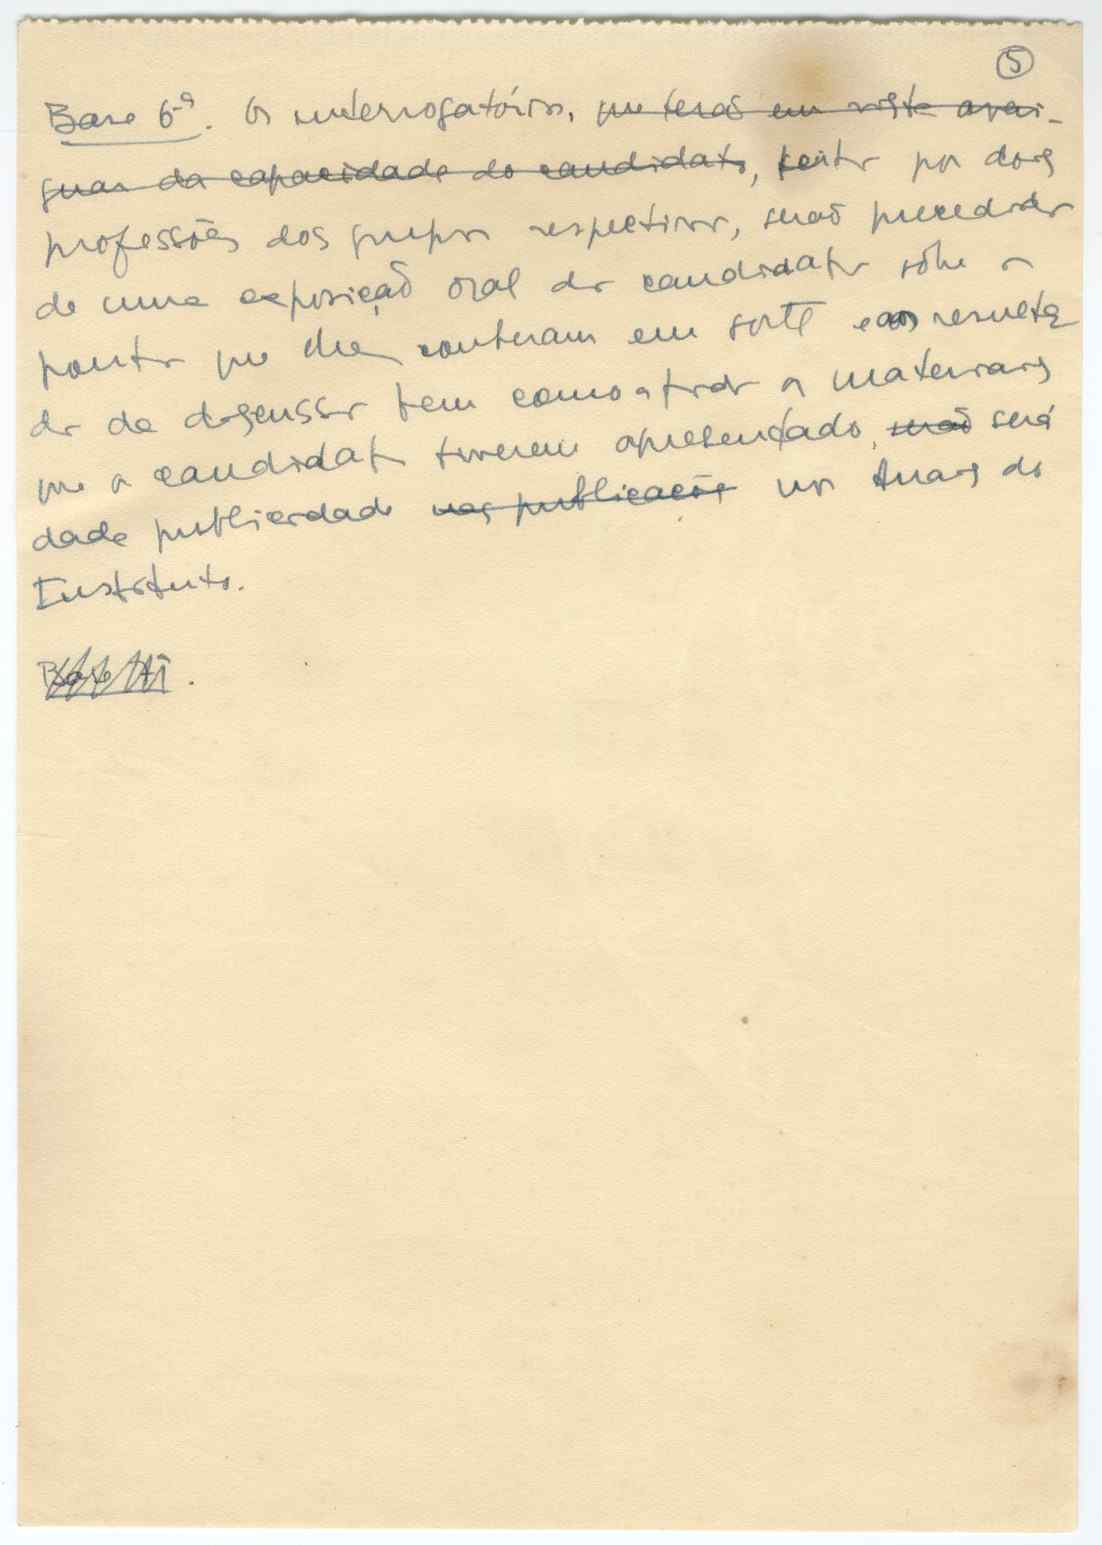 5
Base 6ª. Os interrogatórios, que terão em vista averi-
guar da capacidade do candidato, feitos por dois
professôres dos grupos respectivos, serão precedidos
de uma exposição oral do candidato sôbre o
ponto que lhe em sorte e ao resulta
do da discussão bem como a os materiais
que o candidato tiverem apresentado, serão será
dada publicidade nas publicações nos Anais do
Instituto.
Base